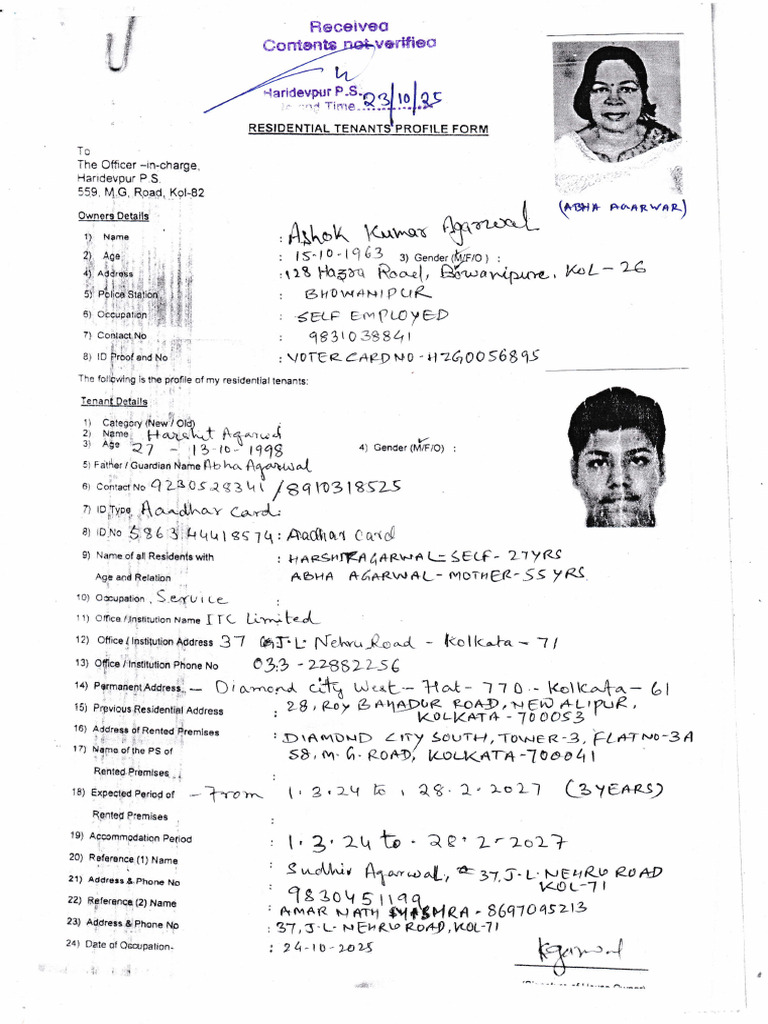 Received
Contents not verified
Haridevpur P.S.
and Time 23/10/25
RESIDENTIAL TENANTS PROFILE FORM
To
The Officer –in-charge,
Haridevpur P.S.
559, M.G. Road, Kol-82
(ABHA AGARWAR)
Owners Details
1) Name : Ashok Kumar Agarwal
2) Age : 15-10-1963 3) Gender (M/F/O) :
4) Address : 128 Hazra Road, Bowanipure, KOL - 26
5) Police Station : BHOWANIPUR
6) Occupation : SELF EMPLOYED
7) Contact No : 9831038841
8) ID Proof and No : VOTER CARD NO - HZG0056895
The following is the profile of my residential tenants:
Tenant Details
1) Category (New / Old)
2) Name Harshit Agarwal
3) Age 27 - 13-10-1998 4) Gender (M/F/O) :
5) Father / Guardian Name Abha Agarwal
6) Contact No 9230528341 / 8910318525
7) ID Type Aaadhar Card :
8) ID No 5863 44418574 : Aadhar Card
9) Name of all Residents with : HARSHIT AGARWAL - SELF - 27YRS
Age and Relation ABHA AGARWAL - MOTHER - 55 YRS
10) Occupation Service :
11) Office / Institution Name ITC Limited
12) Office / Institution Address 37 J.L. Nehru Road - Kolkata - 71
13) Office / Institution Phone No 033 - 22882256
14) Permanent Address - Diamond City West - Flat - 77D - Kolkata - 61
15) Previous Residential Address : 28, ROY BAHADUR ROAD, NEW ALIPUR, KOLKATA - 700053
16) Address of Rented Premises : DIAMOND CITY SOUTH, TOWER-3, FLAT NO-3A
17) Name of the PS of 58, M.G. ROAD, KOLKATA-700041
Rented Premises :
18) Expected Period of - From 1.3.24 to 28.2.2027 (3 YEARS)
Rented Premises :
19) Accommodation Period : 1.3.24 to 28.2-2027
20) Reference (1) Name : Sudhir Agarwal, 37, J.L. NEHRU ROAD KOL-71
21) Address & Phone No : 9830451199
22) Reference (2) Name : AMAR NATH MISHRA - 8697095213
23) Address & Phone No : 37, J.L. NEHRU ROAD, KOL-71
24) Date of Occupation- : 24-10-2025
Kgarwal